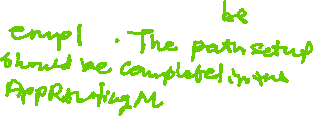 be
empl . The path setup
should be completed in the
AppRoutingM